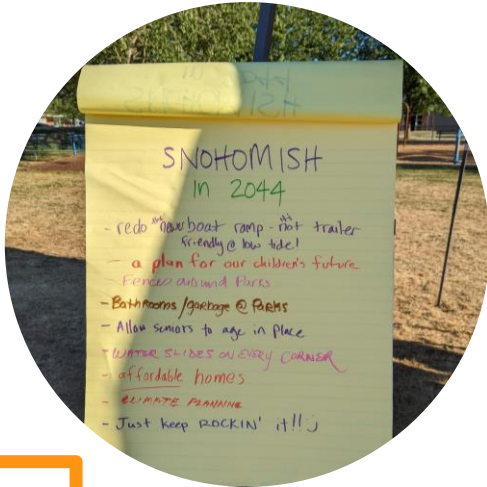 SNOHOMISH
in 2044
- redo the "new boat ramp - it's not trailer
friendly @ low tide!
- a plan for our children's future
Fences around Parks
- Bathrooms/garbage @ Parks
- Allow seniors to age in place
- WATER SLIDES ON EVERY CORNER
- affordable homes
- CLIMATE PLANNING
- Just keep ROCKIN' it!! :)